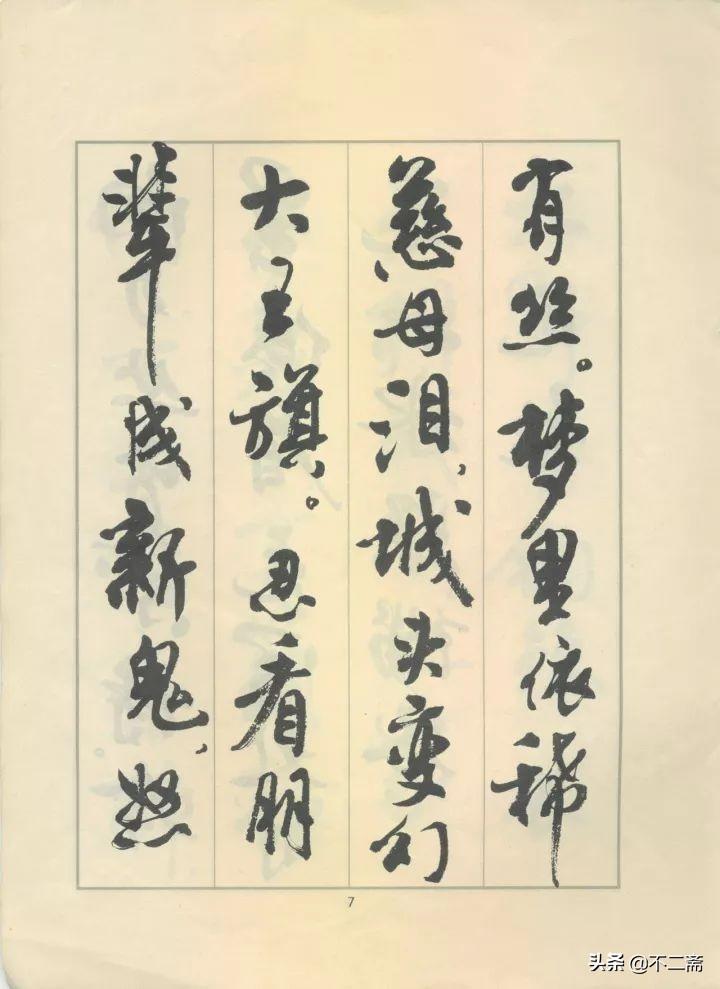 有丝。梦里依稀
慈母泪，城头变幻
大王旗。忍看朋
辈成新鬼，怒
7
头条 @不二斋